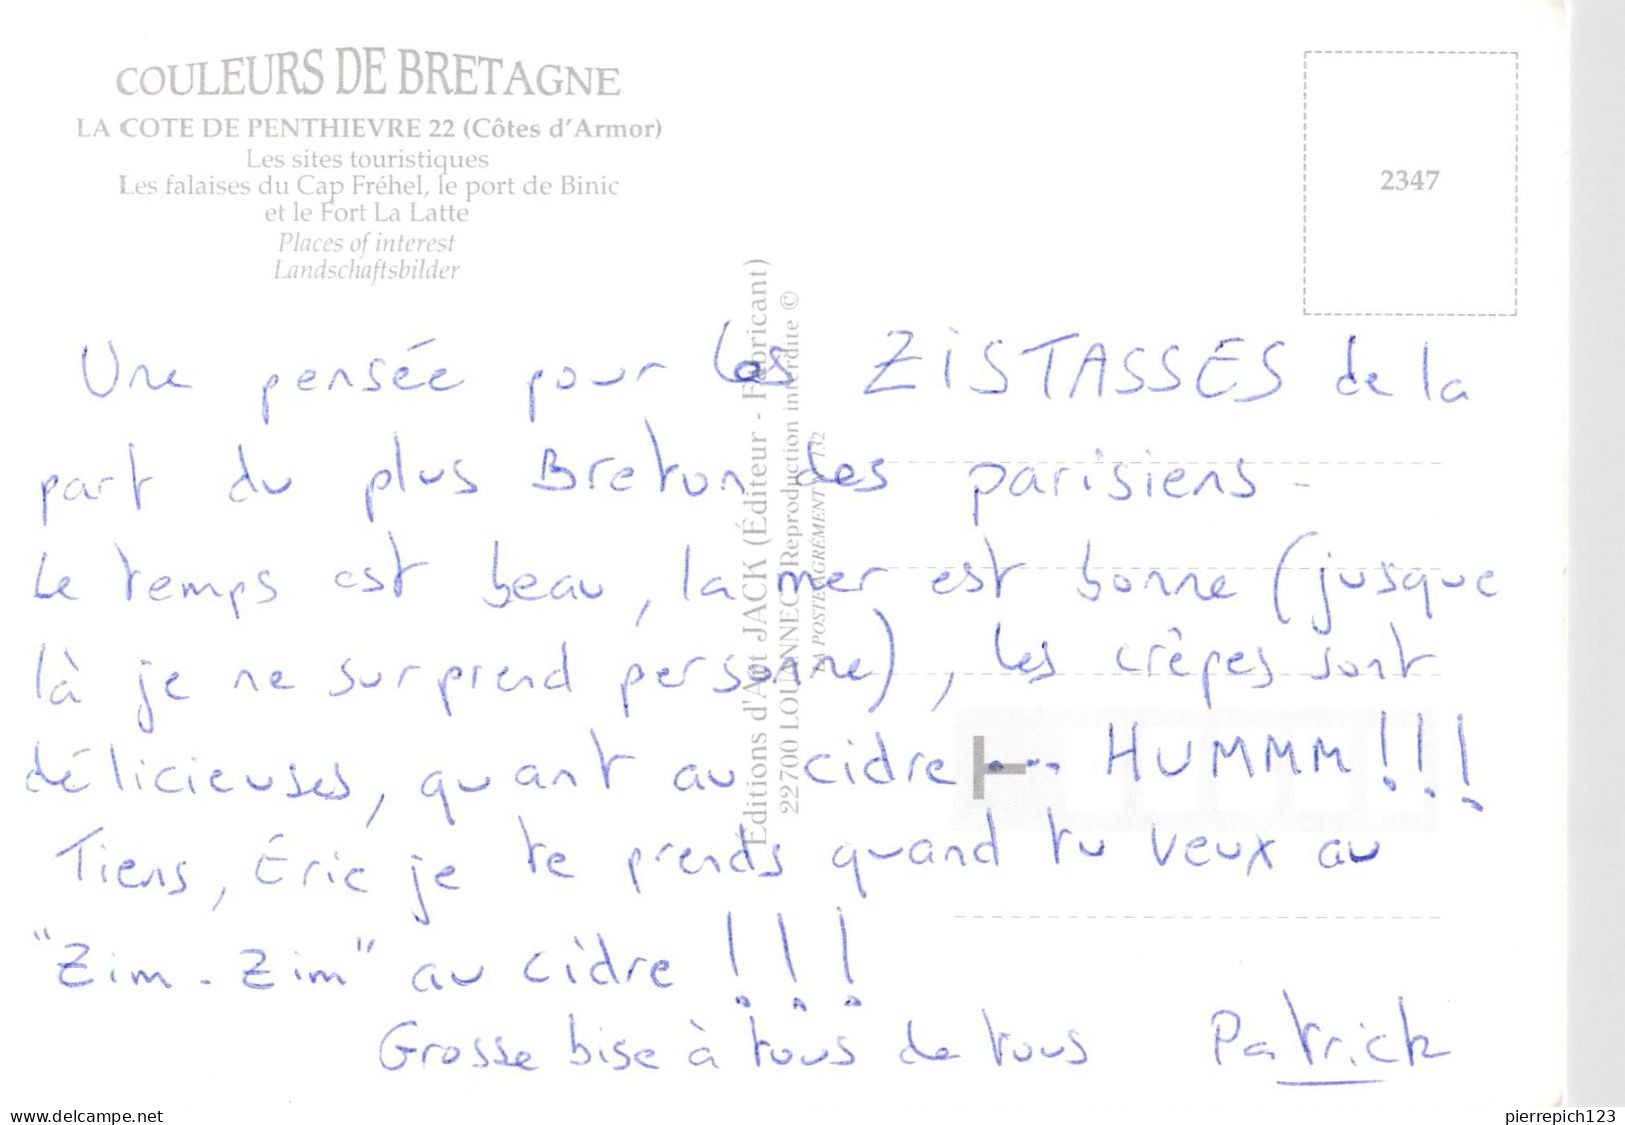 COULEURS DE BRETAGNE
LA COTE DE PENTHIEVRE 22 (Côtes d'Armor)
Les sites touristiques
Les falaises du Cap Fréhel, le port de Binic
et le Fort La Latte
Places of interest
Landschaftsbilder
2347
Éditions d'Art JACK (Éditeur - Fabricant)
22700 LOUANNEC Reproduction interdite ©
LA POSTE AGRÉMENT 132
Une pensée pour les ZiSTASSES de la
part du plus Breton des parisiens -
Le temps est beau, la mer est bonne (jusque
là je ne surprend personne), les crêpes sont
délicieuses, quant au cidre ... HUMMM!!!
Tiens, Éric je te prends quand tu veux au
"Zim - Zim" au cidre !!!
Grosse bise à tous de tous Patrick
www.delcampe.net
pierrepich123